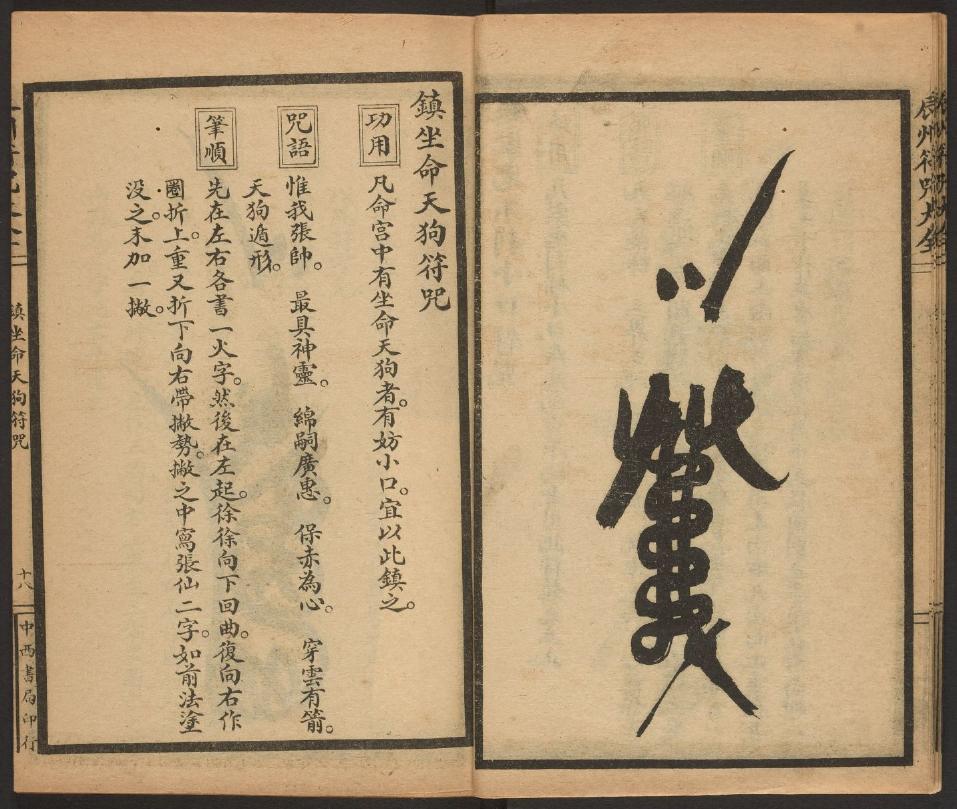 辰州符咒大全
鎮坐命天狗符咒
功用
凡命宮中有坐命天狗者。有妨小口。宜以此鎮之。
咒語
惟我張帥。 最具神靈。 綿嗣廣惠。 保赤為心。 穿雲有箭。
天狗遁形。
筆順
先在左右各書一火字。然後在左起。徐徐向下回曲。復向右作
圈折上。重又折下向右帶撇勢。撇之中寫張仙二字。如前法塗
没之。末加一撇。
鎮坐命天狗符咒
十八
中西書局印行